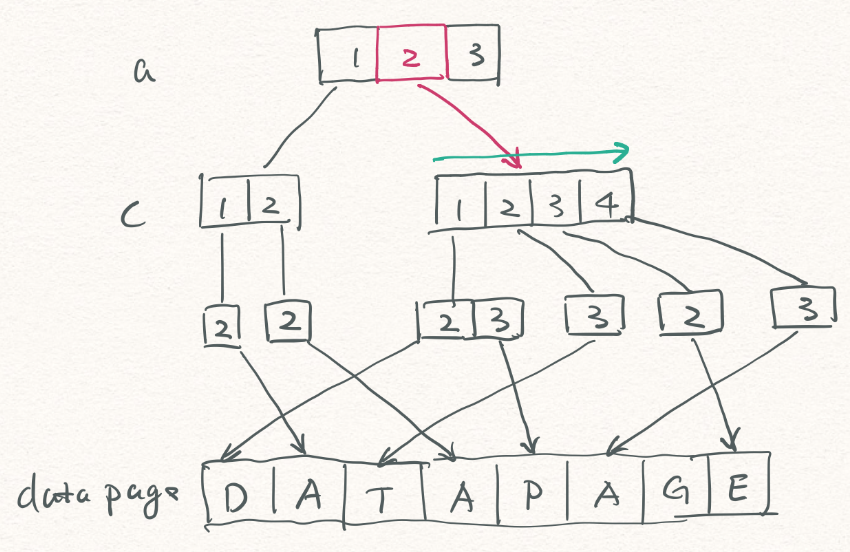 a 1 2 3
c 1 2 1 2 3 4
2 2 2 3 3 2 3
data page D A T A P A G E